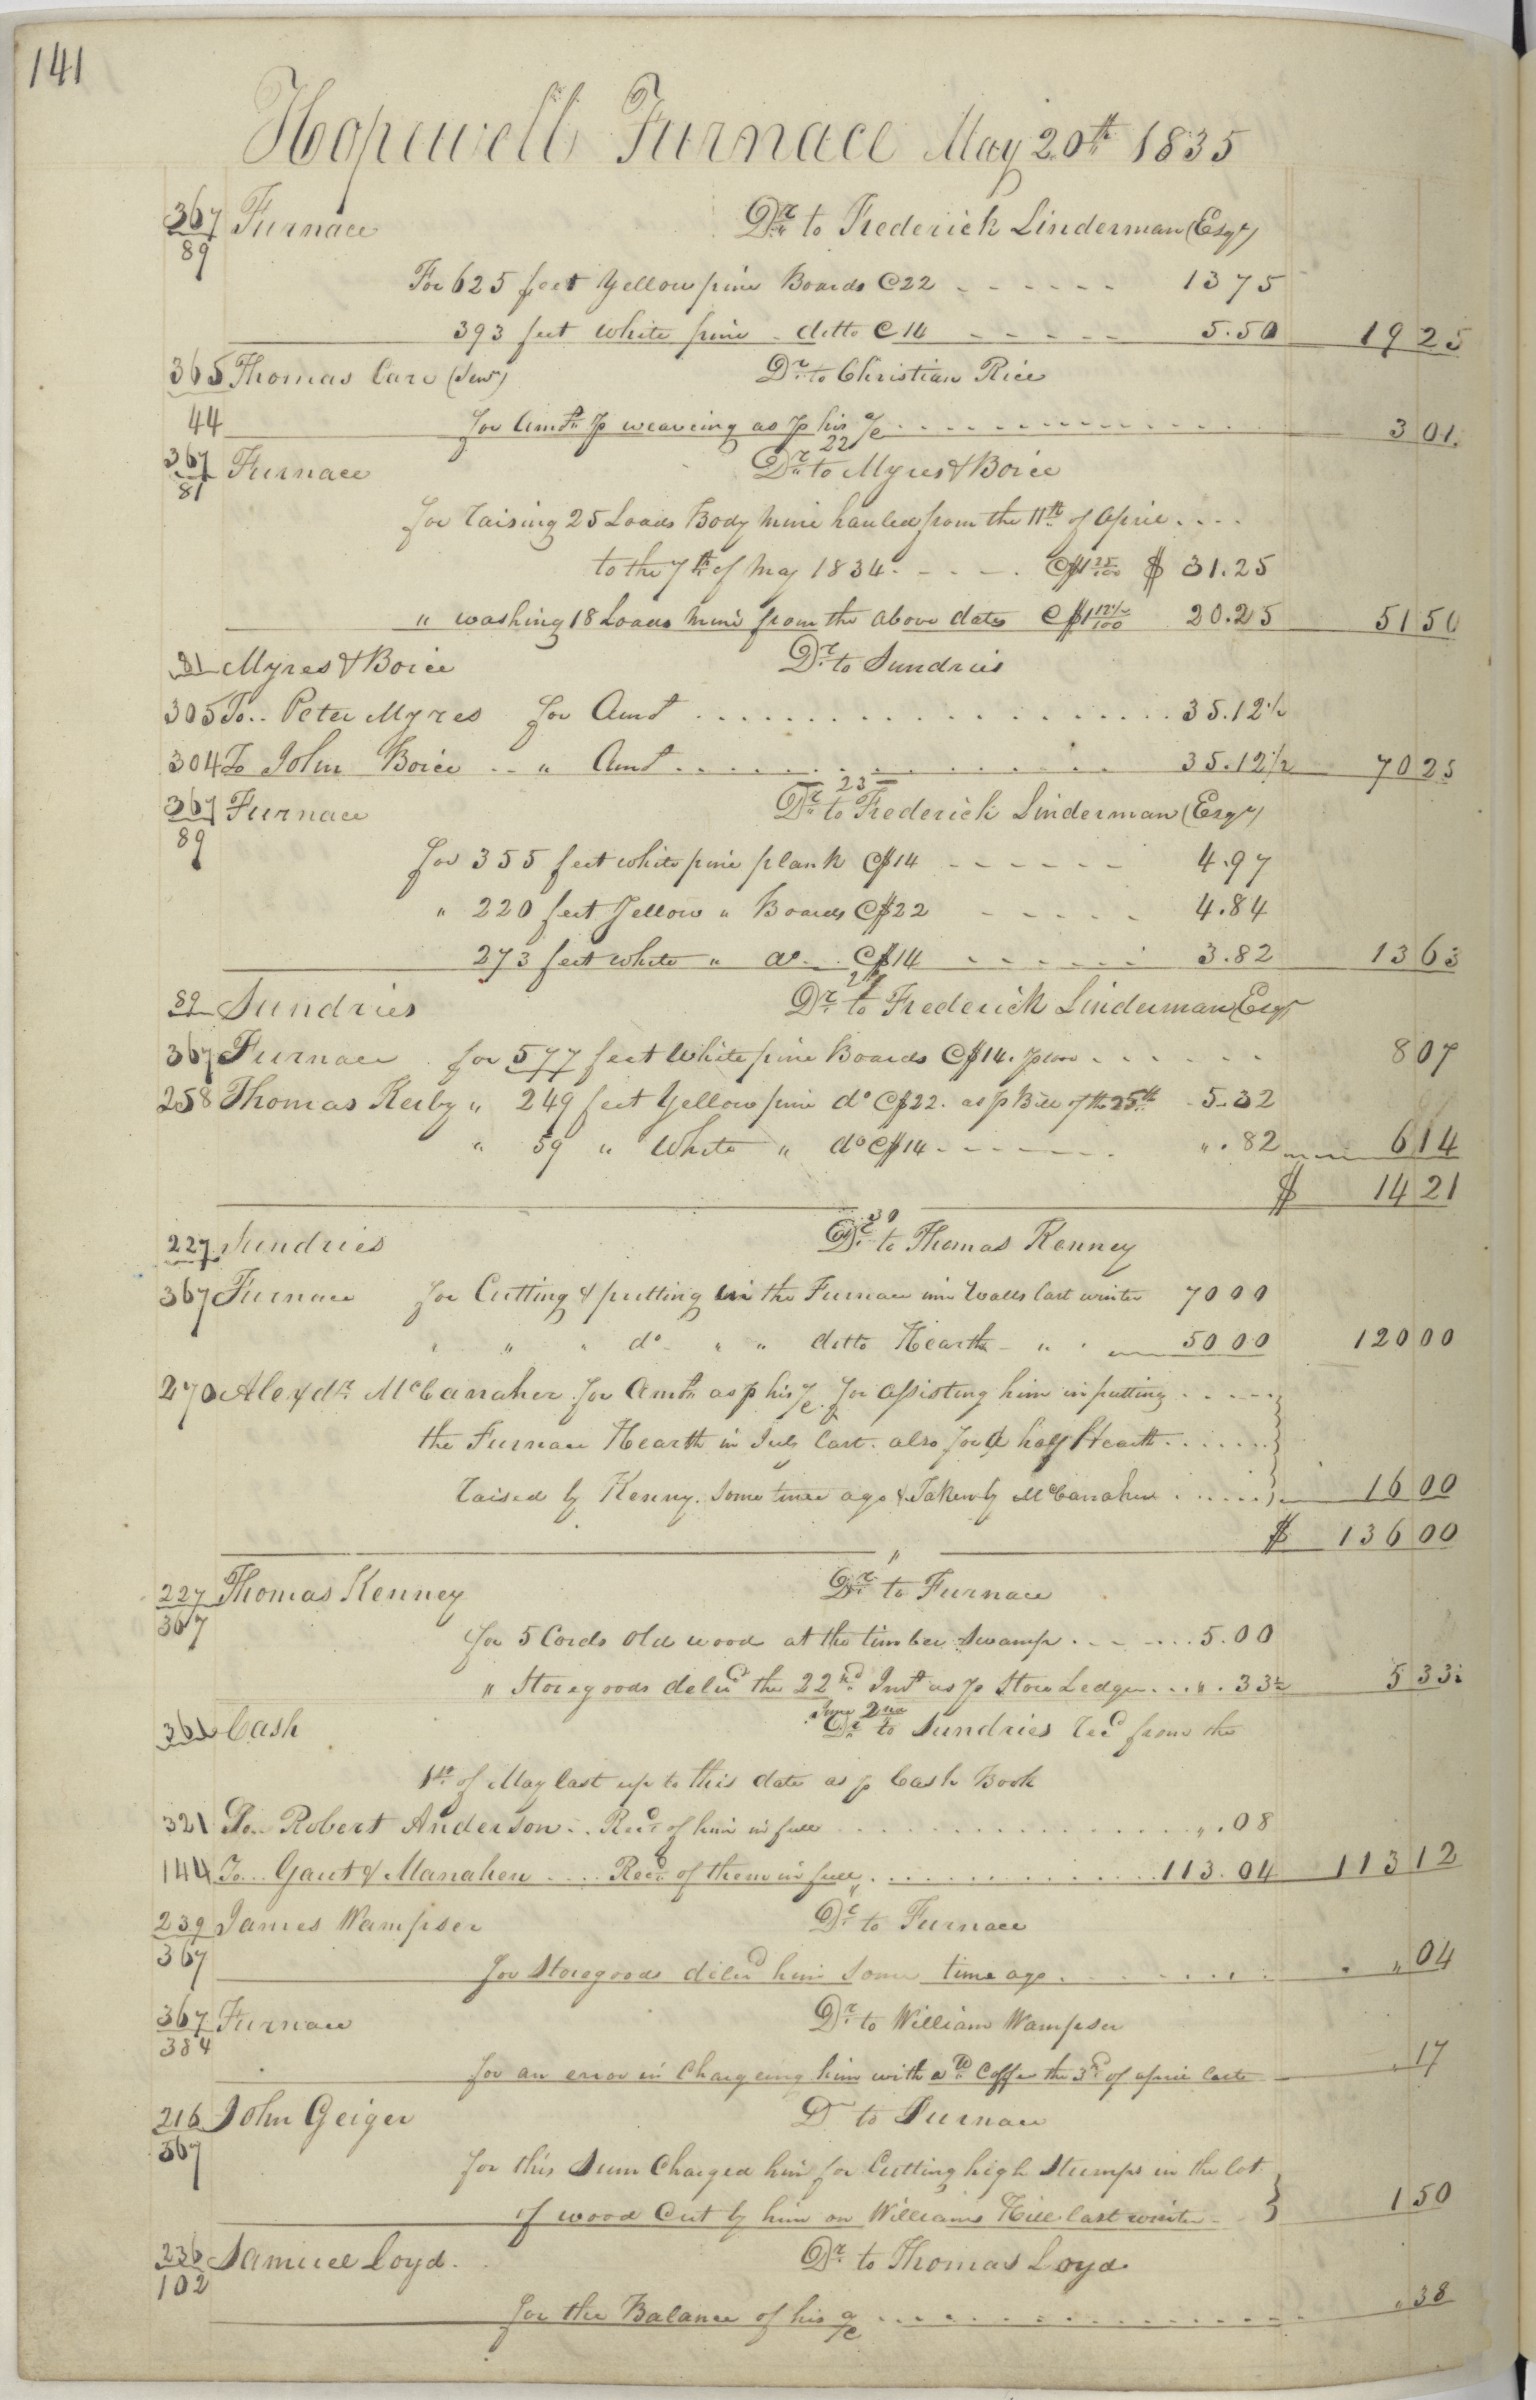 141
Hopewell Furnace May 20th 1835
367 Furnace Dr. to Frederick Linderman (Esqr)
89
For 625 feet Yellow pine Boards @22 - - - - - - 13 75
393 feet white pine - ditto @ 14 - - - - - 5.50 19 25
365 Thomas Care (Senr) Dr. to Christian Rice
44 for Amt. p weaveing as p his a/c . . . . . . . . . . . . 3 01.
22
367 Furnace Dr. to Myres & Boice
81
for raising 25 Loads Body mine hauled from the 11th of April . . . .
to the 7th of May 1834. - - - - @ $1 25/100 $ 31.25
" washing 18 Loads mine from the above date @ $1 12½/100 20.25 51 50
81 Myres & Boice Dr. to Sundries
305 To.. Peter Myres for Amt . . . . . . . . . . . . . . . . 35.12½
304 To John Boice .. " Amt . . . . . . . . . . . . . 35.12½ 70 25
23
367 Furnace Dr. to Frederick Linderman (Esqr)
89
for 355 feet white pine plank @$14 - - - - - - 4.97
" 220 feet Yellow " Boards @$22 - - - - - 4.84
273 feet white " do. . @$14 - - - - - - 3.82 13 63
89 Sundries Dr. to Frederick Linderman Esqr
367 Furnace . for 577 feet White pine Boards @$14. p - - - - - - 8 07
258 Thomas Kerby " 249 feet Yellow pine do @$22. as p Bill of the 25th - 5.32
" 59 " White " do @$14 - - - - - - ". 82 6 14
$ 14 21
30
227 Sundries Dr. to Thomas Kenney
367 Furnace for Cutting & putting in the Furnace inn Walls last winter 70 00
" " " do - " " ditto Hearth - " " 50 00 120 00
270 Alexdr McCanaher for Amt. as p his a/c. for assisting him in putting . . . . .
the Furnace Hearth in July last. also for a half Hearth . . . . . .
raised by Kenny. some time ago & Taken by McCanaher . . . . . . 16 00
$ 136 00
"
227 Thomas Kenney Dr. to Furnace
367
for 5 Cords Old wood at the timber Swamp . . . . . . . 5.00
" Storegoods delivd the 22nd Inst as p Store Ledger . . . ". 33½ 5 33½
June 2nd
361 Cash Dr. to Sundries recd from the
1st of May last up to this date as p Cash Book
321 To.. Robert Anderson . . Recd of him in full . . . . . . . . . . . . . . . ". 08
144 To... Gant & Manahen . . . . Recd of them in full . . . . . . . . . . . . 113.04 113 12
"
239 James Wampser Dr. to Furnace
367
for Storegoods delivd him some time ago . . . . . . . . . . " 04
367 Furnace Dr. to William Wampser
384
for an error in Chargeing him with a lb Coffee the 3rd of april last - . 17
216 John Geiger Dr to Furnace
367
for this Sum Charged him for Cutting high Stumps in the lot
of wood Cut by him on Williams Hill last winter - 1 50
236 Samuel Loyd. Dr. to Thomas Loyd.
102
for the Balance of his a/c . . . . . . . . . . . . . . . . . . . 38